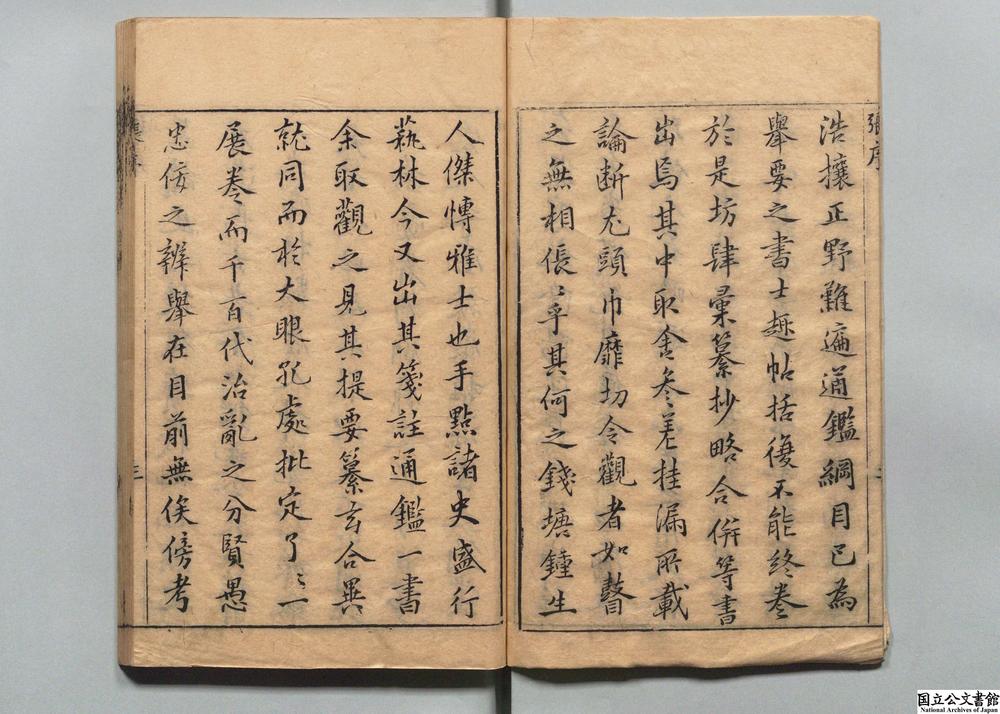 張序
浩攘正野難遍通鑑綱目已為
舉要之書士趣帖括復不能終卷
於是坊肆彙纂抄略合併等書
出焉其中取舍參差挂漏所載
論斷尤頭巾靡切令觀者如瞽
之無相倀〻乎其何之錢塘鍾生
人傑愽雅士也手點諸史盛行
蓺林今又出其箋註通鑑一書
余取觀之見其提要纂玄合異
就同而於大眼孔處批定了〻一
展卷而千百代治亂之分賢愚
忠佞之辨舉在目前無俟傍考
三
国立公文書館
National Archives of Japan